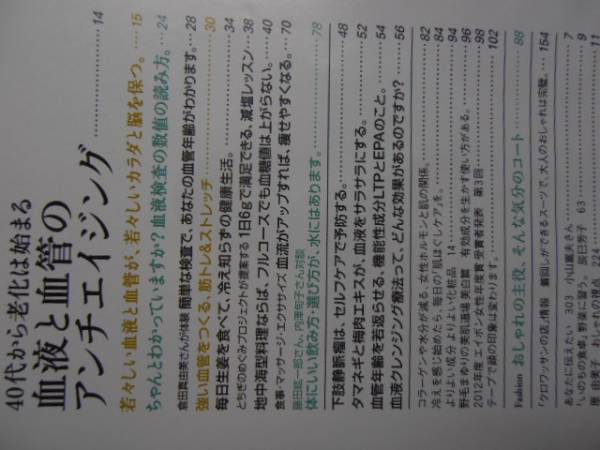 40代から老化は始まる
血液と血管の
アンチエイジング………14
若々しい血液と血管が、若々しいカラダと脳を保つ。…15
ちゃんとわかっていますか? 血液検査の数値の読み方。…24
倉田真由美さんが体験 簡単な検査で、あなたの血管年齢がわかります。…28
強い血管をつくる、筋トレ&ストレッチ………30
毎日生姜を食べて、冷え知らずの健康生活。………34
とちぎのめぐみプロジェクトが提案する 1日6gで満足できる、減塩レッスン…38
地中海型料理ならば、フルコースでも血糖値は上がらない。…40
食事・マッサージ・エクササイズ 血流がアップすれば、痩せやすくなる。…70
藤田紘一郎さん、内津旬子さん対談
体にいい飲み方・選び方が、水にはあります。………78
下肢静脈瘤は、セルフケアで予防する。………52
タマネギと梅肉エキスが、血液をサラサラにする。………54
血管年齢を若返らせる、機能性成分LTPとEPAのこと。………56
血液クレンジング療法って、どんな効果があるのですか?
コラーゲンや水分が減る…女性ホルモンと肌の関係。…82
冷えを感じ始めたら、毎日の「肌ほぐしケア」を。…84
よりよい成分 よりよい化粧品 14…94
野毛まゆりの美肌道場 美白篇 有効成分を生かす使い方がある。…96
2012年度 エイボン女性年度賞 受賞者発表 第3回…98
テープで顔の印象は変わります。………102
Fashion おしゃれの主役、そんな気分のコート………88
「クロワッサンの店」情報 着回しができるスーツで、大人のおしゃれは完璧。…154
あなたに伝えたい 303 小山薫堂さん…7
「いのちの食卓」野菜に習う。 辰巳芳子 63…9
原 由美子 おしゃれの視点 224…11